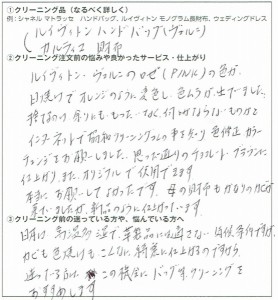 ①クリーニング品（なるべく詳しく）
例：シャネル マトラッセ　ハンドバッグ、ルイヴィトン モノグラム長財布、ウェディングドレス
ルイヴィトン ハンドバッグ（ヴェルニ）
カルティエ 財布
②クリーニング注文前の悩みや良かったサービス・仕上がり
ルイヴィトン・ヴェルニのロゼ（PINK）の色が、
日焼けでオレンジのように変色し、色ムラが出てました。
捨てるのは余りにももったいなく、何とかならないものかと
インターネットで協和クリーニングさんの事を知り色修正カラー
チェンジをお願いしました。思った通りのチョコレートブラウンに
仕上がり、またオリジナルで使用できます
本当にお願いしてよかったです。母の財布もかなりのカビが
新品のように仕上がっています。
③クリーニング前の迷っている方や、悩んでいる方へ
日本は高温多湿で、革製品には適さない
カビも色焼けもこんなに綺麗に仕上がるのですから
迷ってる方は、この機会にバッグのクリーニングを
おすすめします